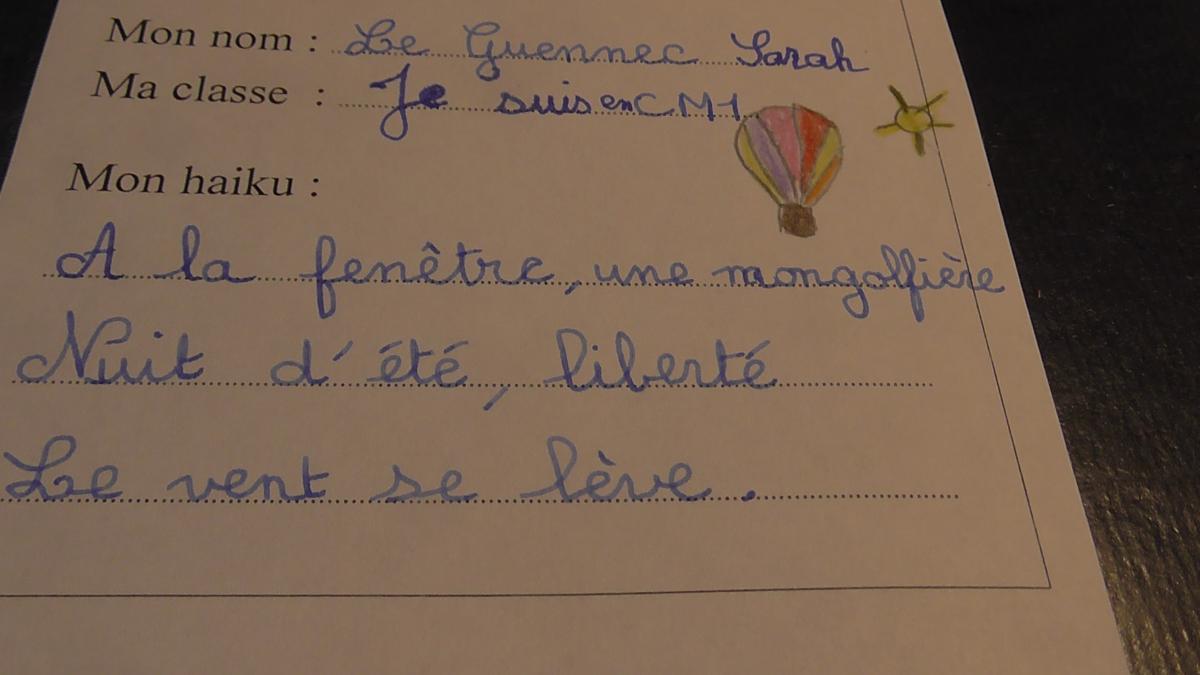 Mon nom : Le Guennec Sarah
Ma classe : Je suis en CM1
Mon haiku :
A la fenêtre, une mongolfière
Nuit d'été, liberté
Le vent se lève.